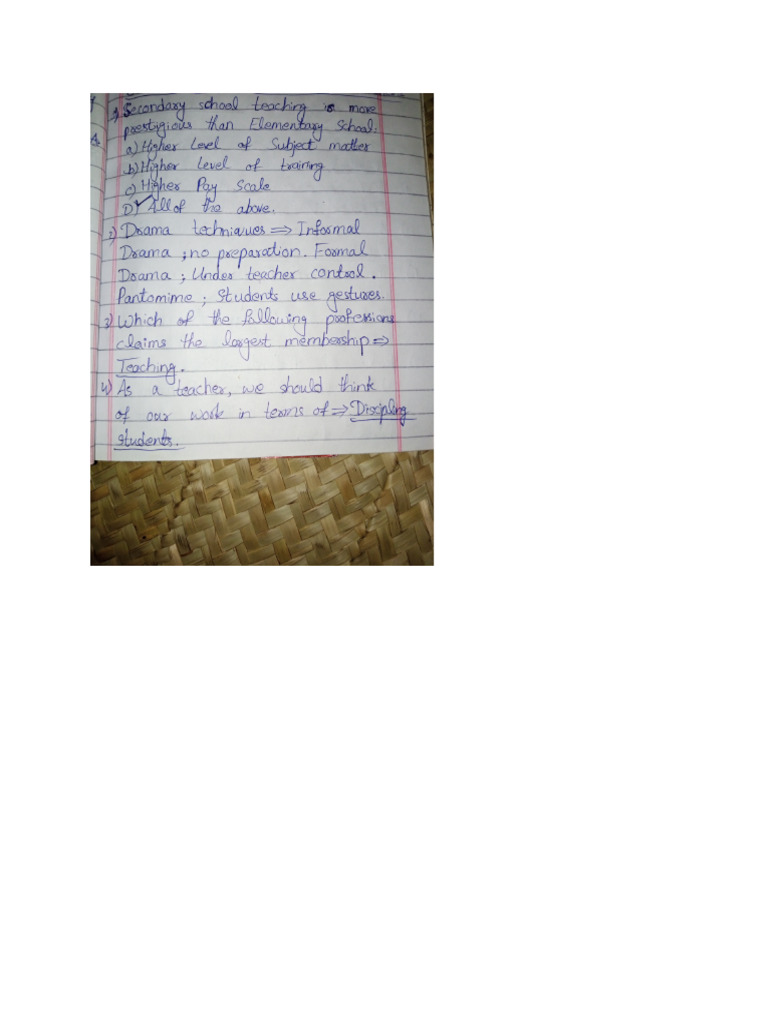 1) Secondary school teaching is more
prestigious than Elementary School.
a) Higher Level of Subject matter
b) Higher Level of training
c) Higher Pay Scale
D) All of the above.
2) Drama techniques ⇒ Informal
Drama ; no preparation. Formal
Drama ; Under teacher control.
Pantomime ; Students use gestures.
3) Which of the following professions
claims the largest membership ⇒
Teaching.
4) As a teacher, we should think
of our work in terms of ⇒ Discipling
students.